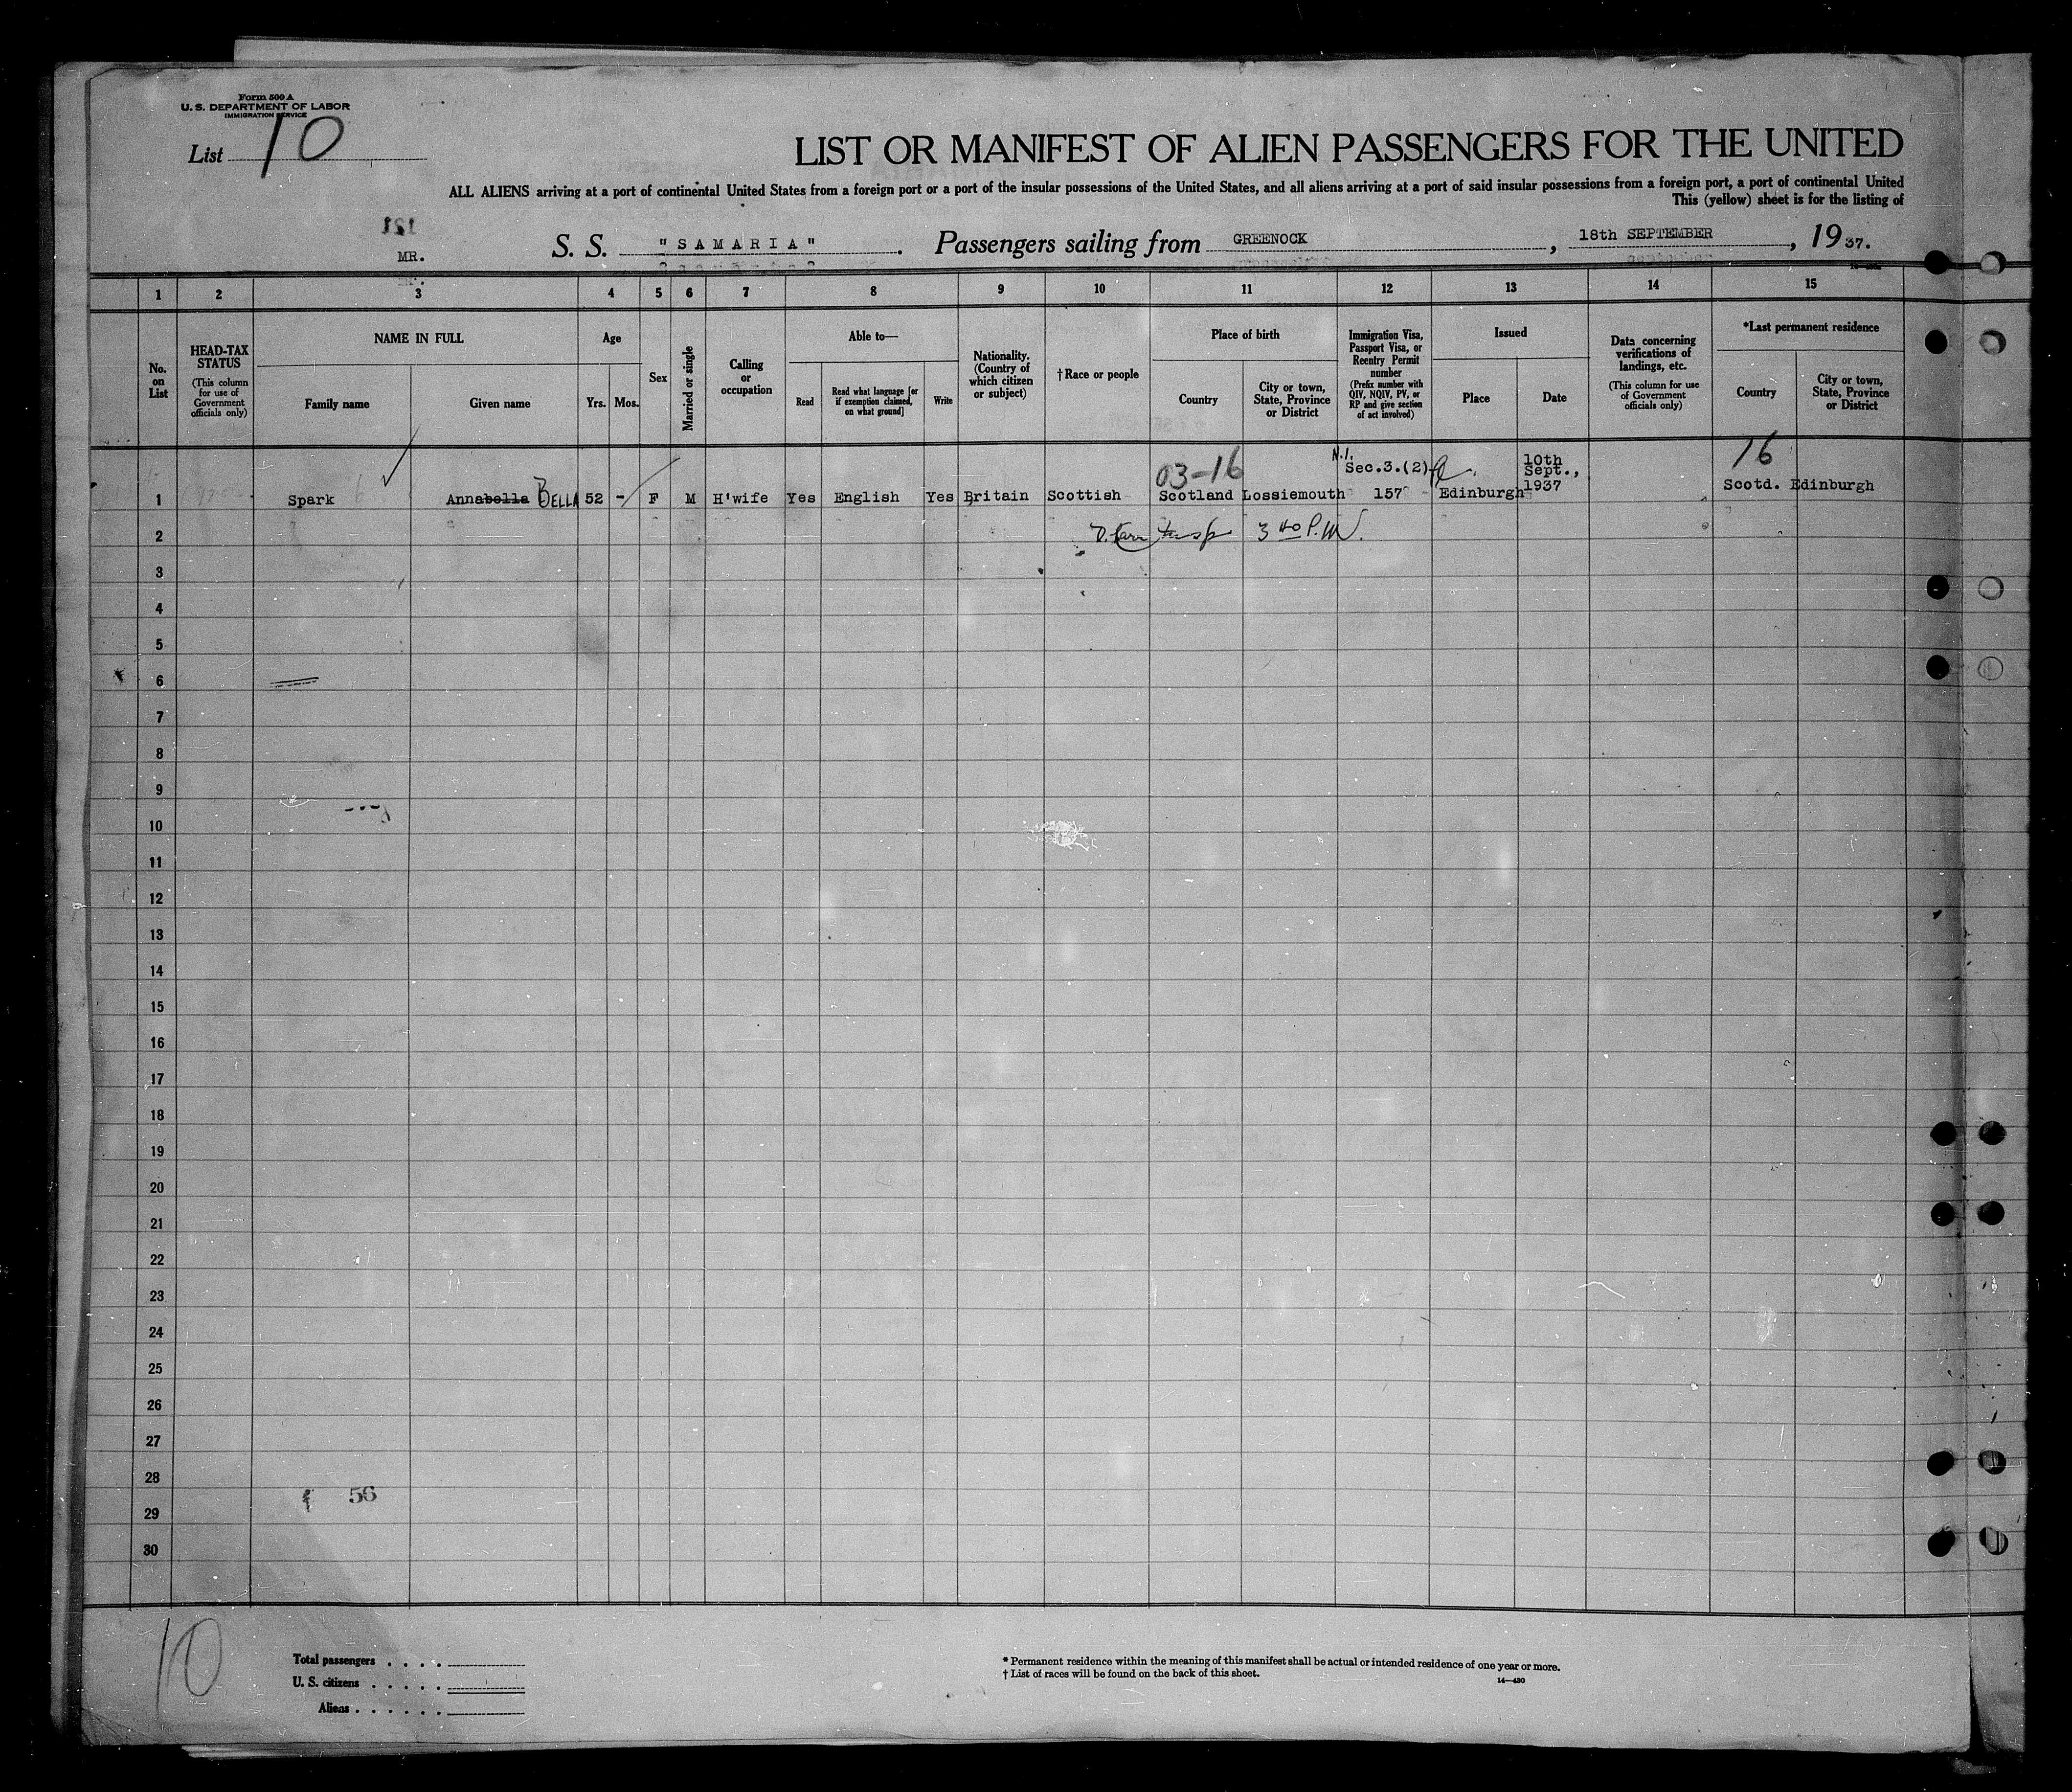 Form 500 A
U. S. DEPARTMENT OF LABOR
IMMIGRATION SERVICE
List 10
LIST OR MANIFEST OF ALIEN PASSENGERS FOR THE UNITED
ALL ALIENS arriving at a port of continental United States from a foreign port or a port of the insular possessions of the United States, and all aliens arriving at a port of said insular possessions from a foreign port, a port of continental United
This (yellow) sheet is for the listing of
121
MR.
S. S. "SAMARIA". Passengers sailing from GREENOCK, 18th SEPTEMBER, 1937.
1 2 3 4 5 6 7 8 9 10 11 12 13 14 15
No. on List
HEAD-TAX STATUS
(This column for use of Government officials only)
NAME IN FULL
Family name
Given name
Age
Yrs. Mos.
Sex
Married or single
Calling or occupation
Able to—
Read
Read what language [or if exemption claimed, on what ground]
Write
Nationality. (Country of which citizen or subject)
†Race or people
Place of birth
Country
City or town, State, Province or District
Immigration Visa, Passport Visa, or Reentry Permit number
(Prefix number with QIV, NQIV, PV, or RP and give section of act involved)
Issued
Place
Date
Data concerning verifications of landings, etc.
(This column for use of Government officials only)
*Last permanent residence
Country
City or town, State, Province or District
03-16 N.I. Sec.3.(2) 10th Sept., 1937 16
1 Spark Annabella BELLA 52 - F M H'wife Yes English Yes Britain Scottish Scotland Lossiemouth 157 Edinburgh Scotd. Edinburgh
2 3 P.M.
3
4
5
6
7
8
9
10
11
12
13
14
15
16
17
18
19
20
21
22
23
24
25
26
27
28
56
29
30
10
Total passengers . . . .
U. S. citizens . . . . .
Aliens . . . . . .
* Permanent residence within the meaning of this manifest shall be actual or intended residence of one year or more.
† List of races will be found on the back of this sheet.
14—430